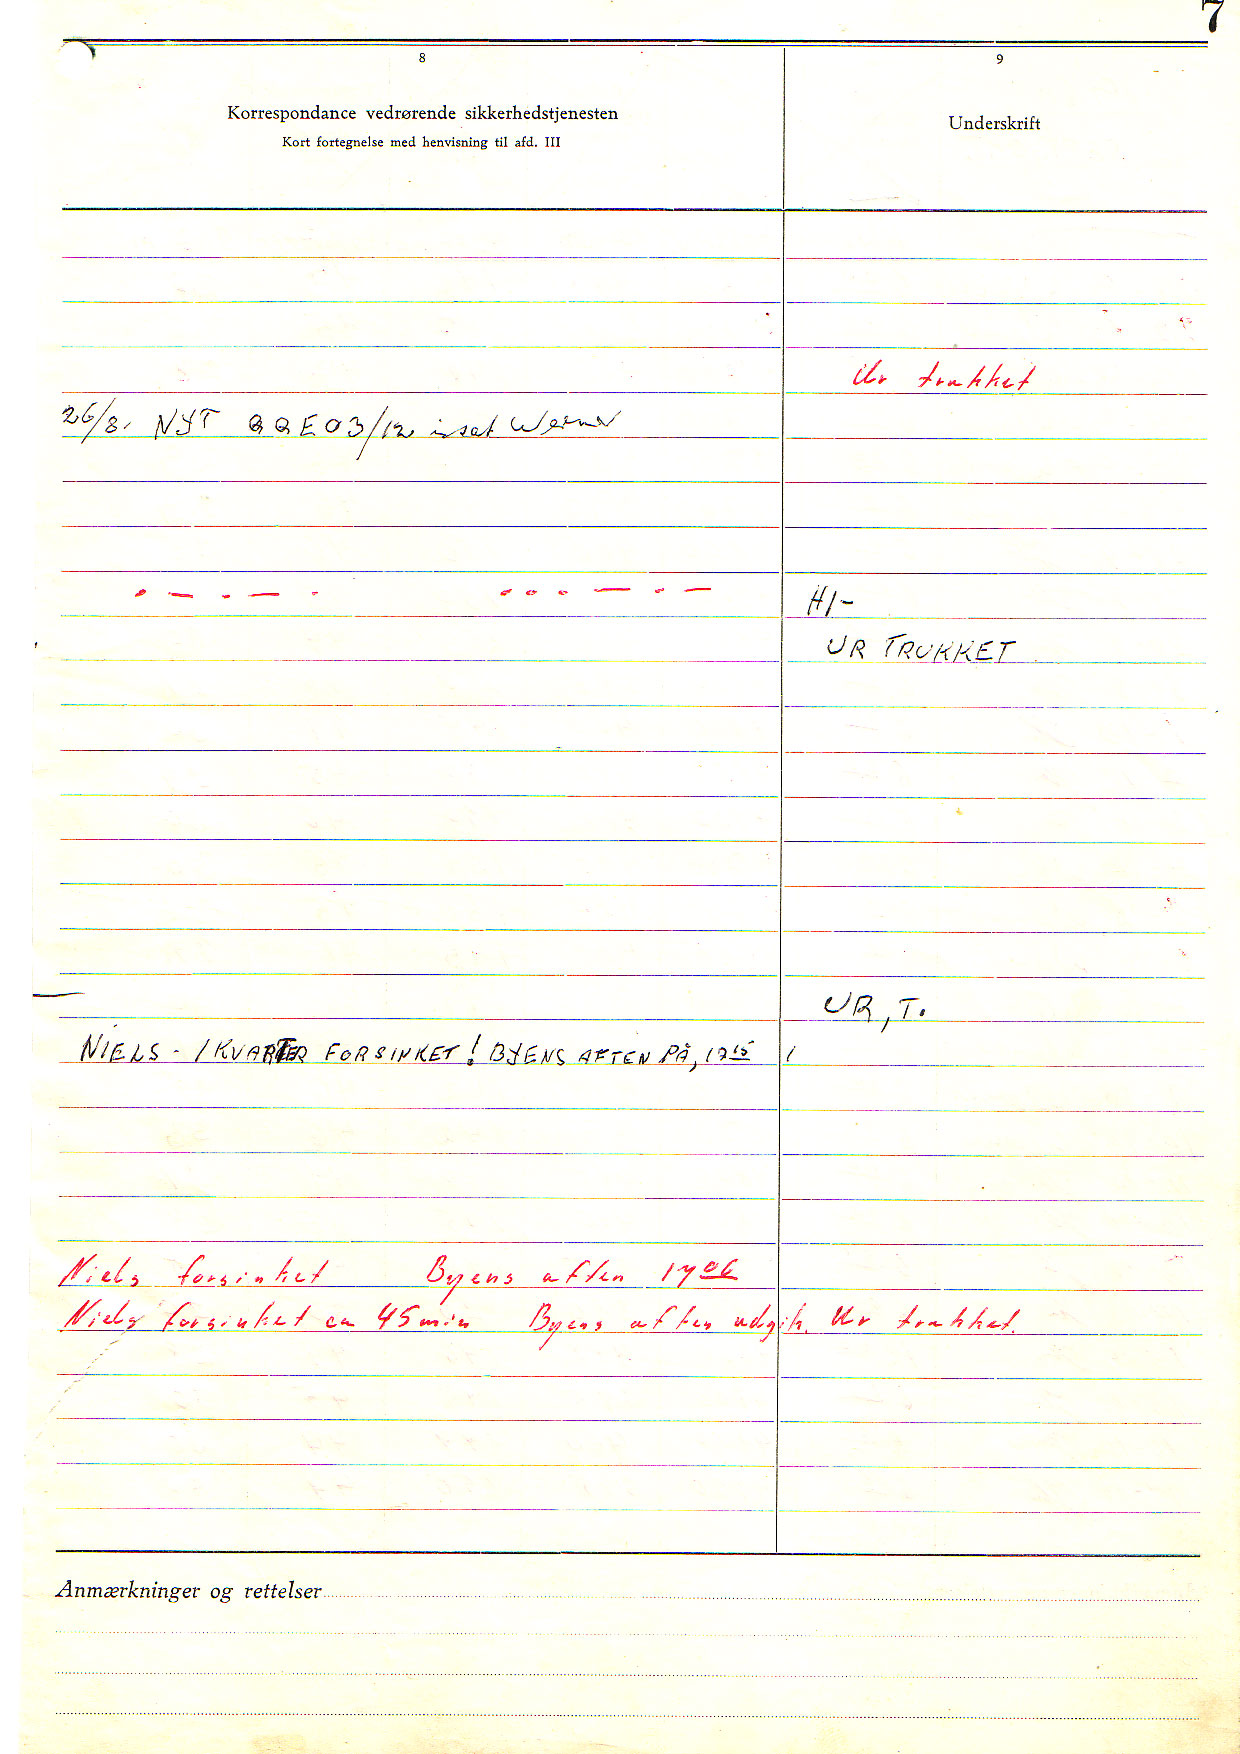 7
8 9
Korrespondance vedrørende sikkerhedstjenesten
Underskrift
Kort fortegnelse med henvisning til afd. III
Ur trukket
26/8. NYT QQE03/12 isat Werner
. — . — . . . . — . — H/-
UR TRUKKET
UR, T.
NIELS - 1 KVARTER FORSINKET! BYENS AFTEN PÅ, 1915
Niels forsinket Byens aften 1906
Niels forsinket ca 45 min Byens aften udgik. Ur trukket.
Anmærkninger og rettelser